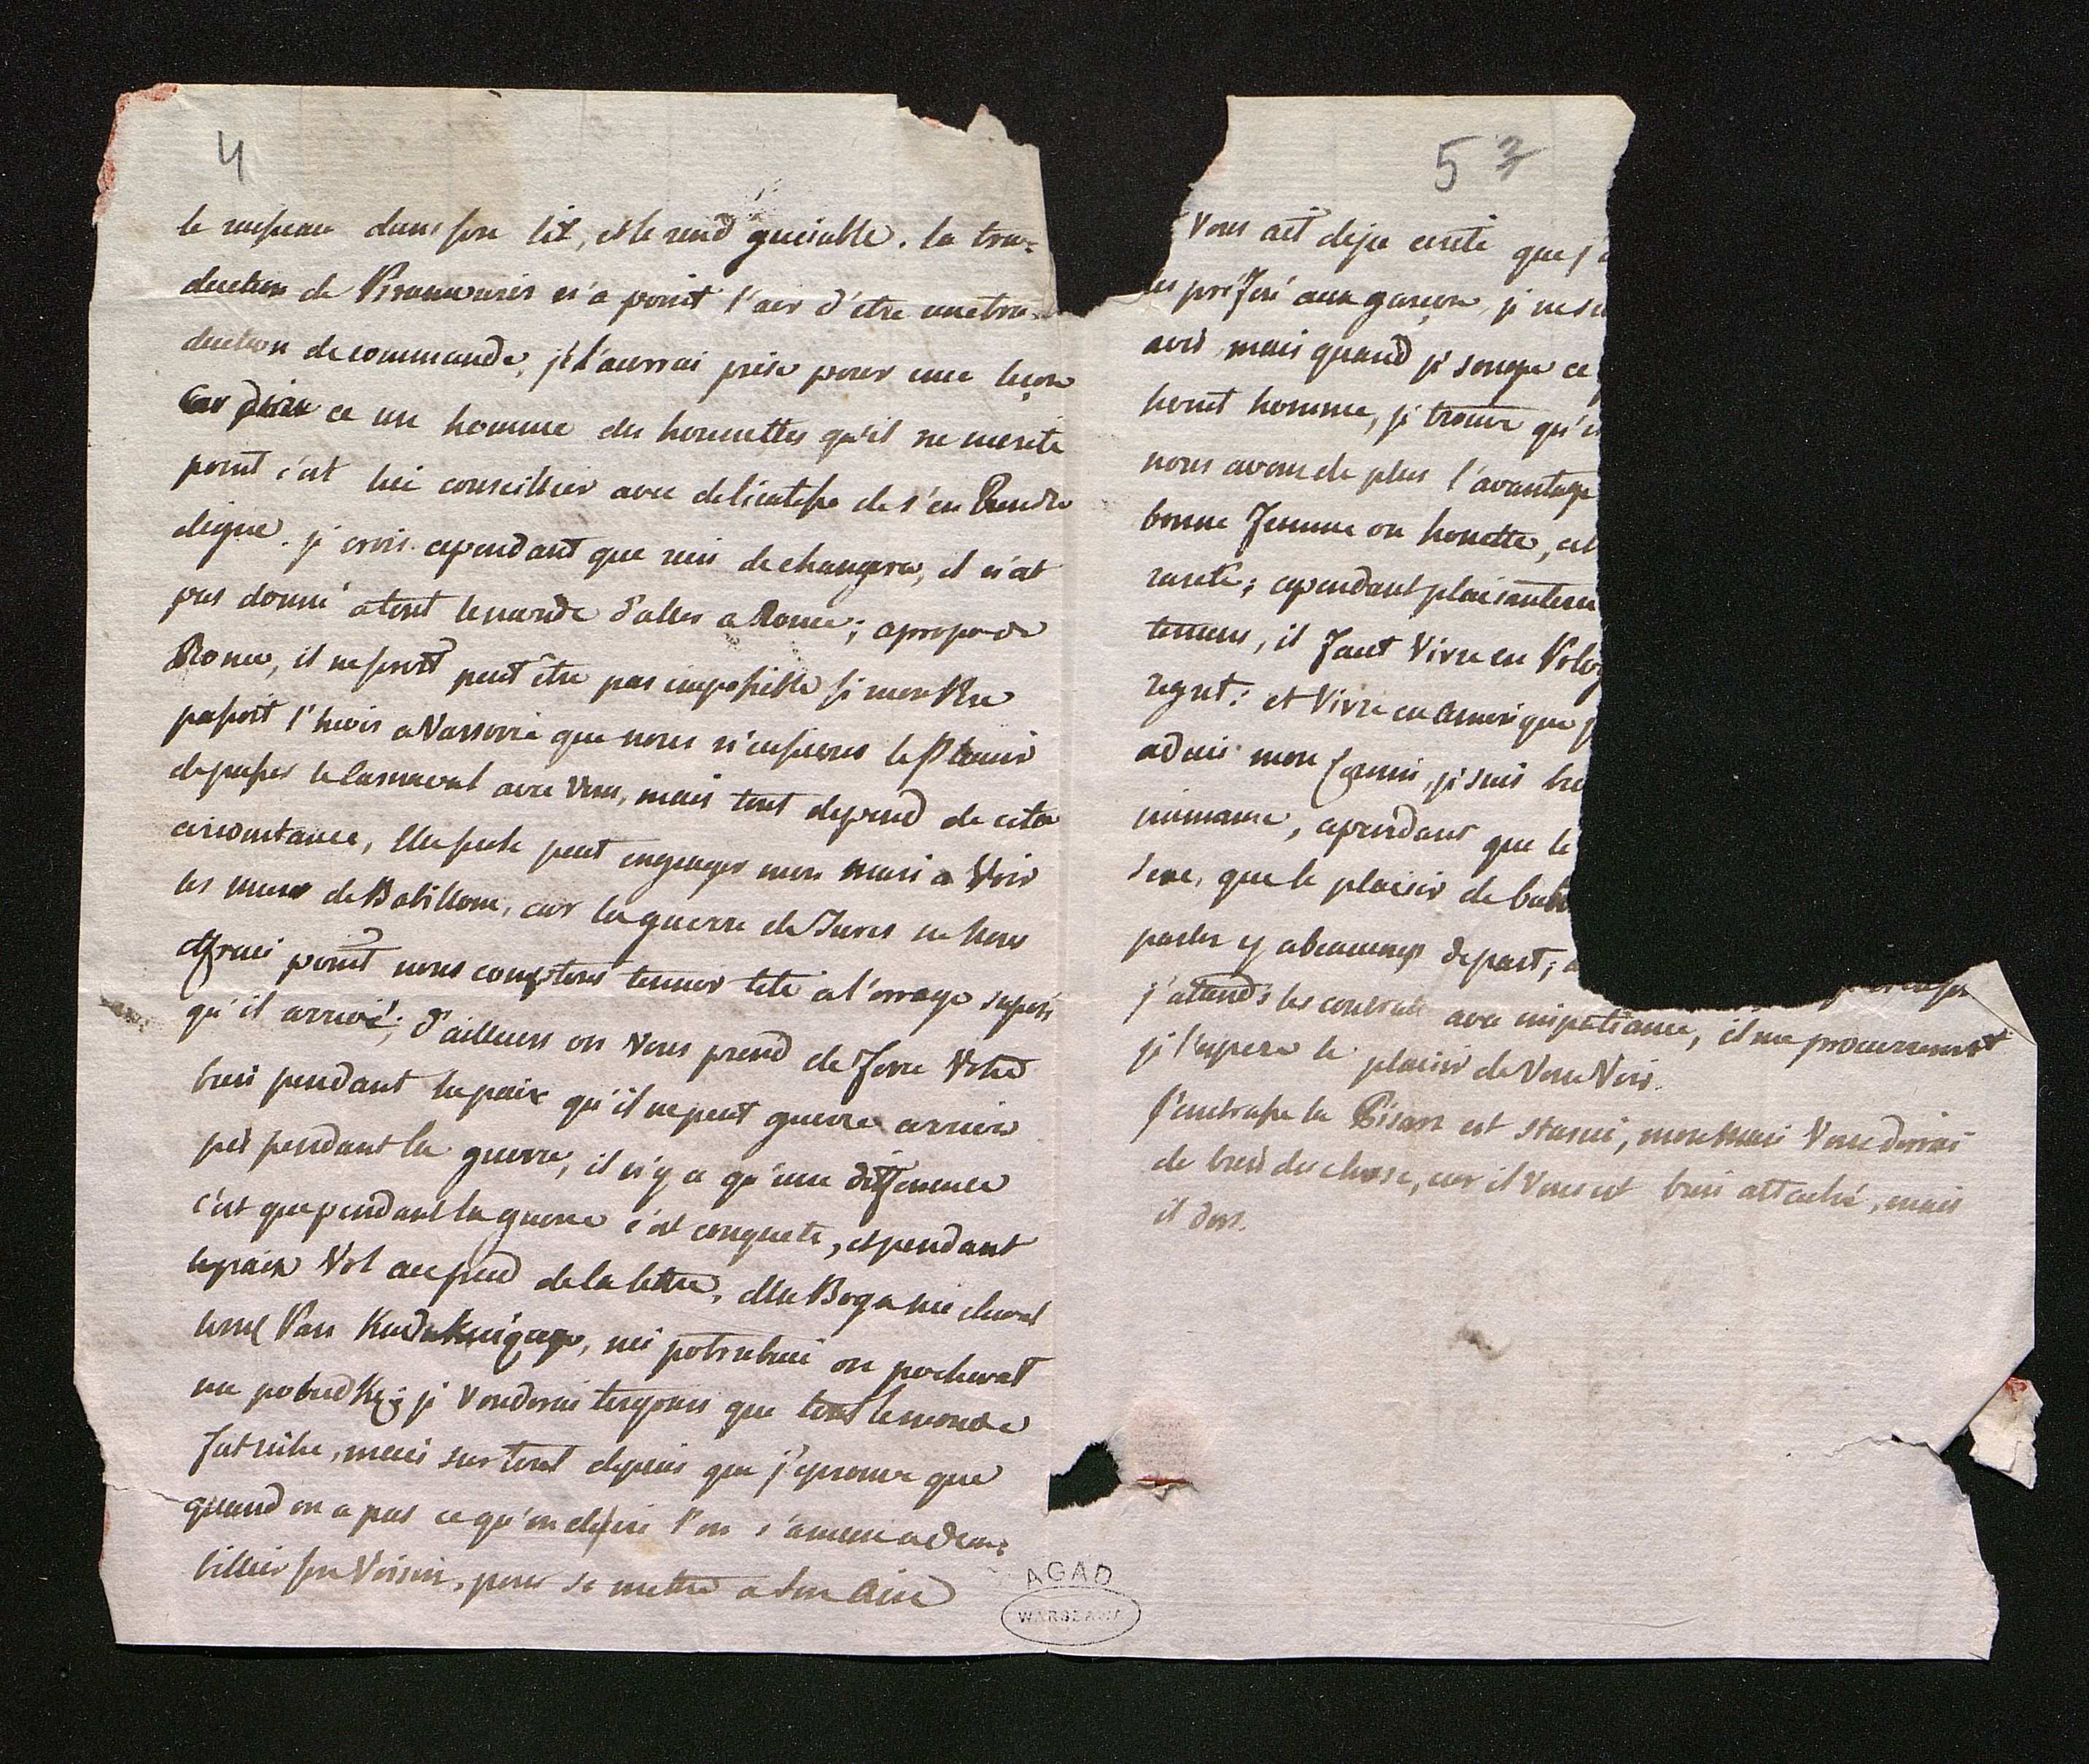 4
le ruisseau dans son lit, et le rend guéiable. la tra-
duction de n'a point l'air d'etre une tra-
duction de commande, je l'aurrai prise pour une leçon
Car dire ce un homme des honnettes qu'il ne merite
point c'est lui conseillier avec delicatesse de s'en Rendre
digne. je crois cependant que rien ne changera, il n'est
pas donné a tout le monde d'aller a Rome; apropo de
Rome, il ne seroit peut être pas impossible si mon Pere
passoit l'hivis a Varsovie que nous n'eussions le Plaisir
de passer le Carnaval avec Vous, mais tout depend de cette
circomtance, Elle seule peut engeager mon mari a Voir
les murs de Babillone, car la guerre de Turcs ne nous
efraie point nous comptons tennir tete a l'orrage suposé
qu'il arrive; d'ailleurs on Vous prend de force Votre
bien pendant la paix qu'il ne peut guerre arriver
pis pendant la guerre, il n'y a qu'une difference
c'est que pendant la guerre c'est conquete, et pendant
la paix Vol au pied de la lettre, dla Boga nie chwal
Pan, nie potrzebuie on pochwał
na pobudkę; je Vouderai toujours que tout le monde
fut riche, mais sur tout depuis que j'eprouve que
quand on a pas ce qu'on desire l'on s'amuse a deua-
billier son Voisin, pour se mettre a son Aise
5 3
Vous ait deja ecrite que j'
les préféré aux garçon, je ne
avis, mais quand je songe ce
honet homme, je trouve qu'
nous avons de plus l'avantage
bonne femme on honette, est
rareté; cependant plaisanterie
temens, il faut Vivre en
regret: et Vivre en Amerique
adieu mon, je suis
, cependant que le
sexe, que le plaisir de
parler y a beaucoup de part;
j'attends les contrats avec impatiance, il me procurerons
je l'espere le plaisir de Vous Voir.
J'embrasse la est, mon Mari Vous dirrai
de bien des chose, car il Vous est bien attaché, mais
il dort.
AGAD
WARSZAWA